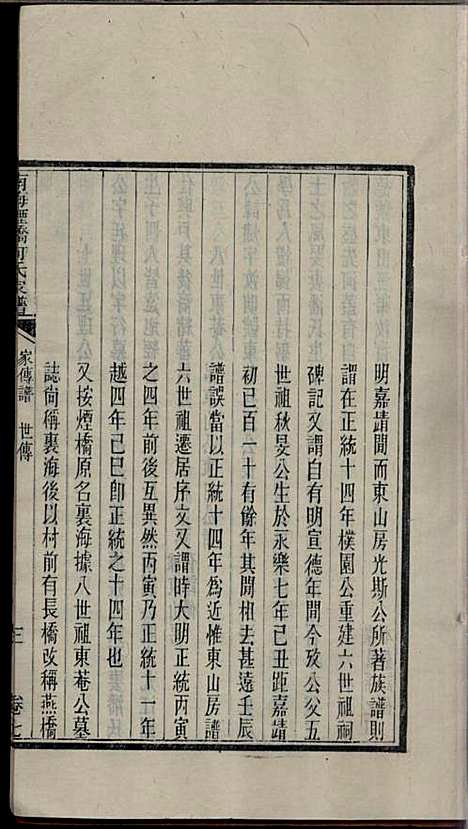 明嘉靖間而東山房光斯公所著族譜則
謂在正統十四年樸園公重建六世祖祠
碑記又謂自有明宣德年間今攷公父五
世祖秋旻公生於永樂七年已丑距嘉靖
初已百一十有餘年其閒相去甚遠壬辰
譜誤當以正統十四年為近惟東山房
六世祖遷居序文又謂時大明正統丙寅
之四年前後互異然丙寅乃正統十一年
越四年己巳卽正統之十四年也
又按煙橋原名裏海據八世祖東菴公墓
誌尙稱裏海後以村前有長橋改稱燕橋
南海煙橋何氏家譜
家傳譜 世傳
三
卷七